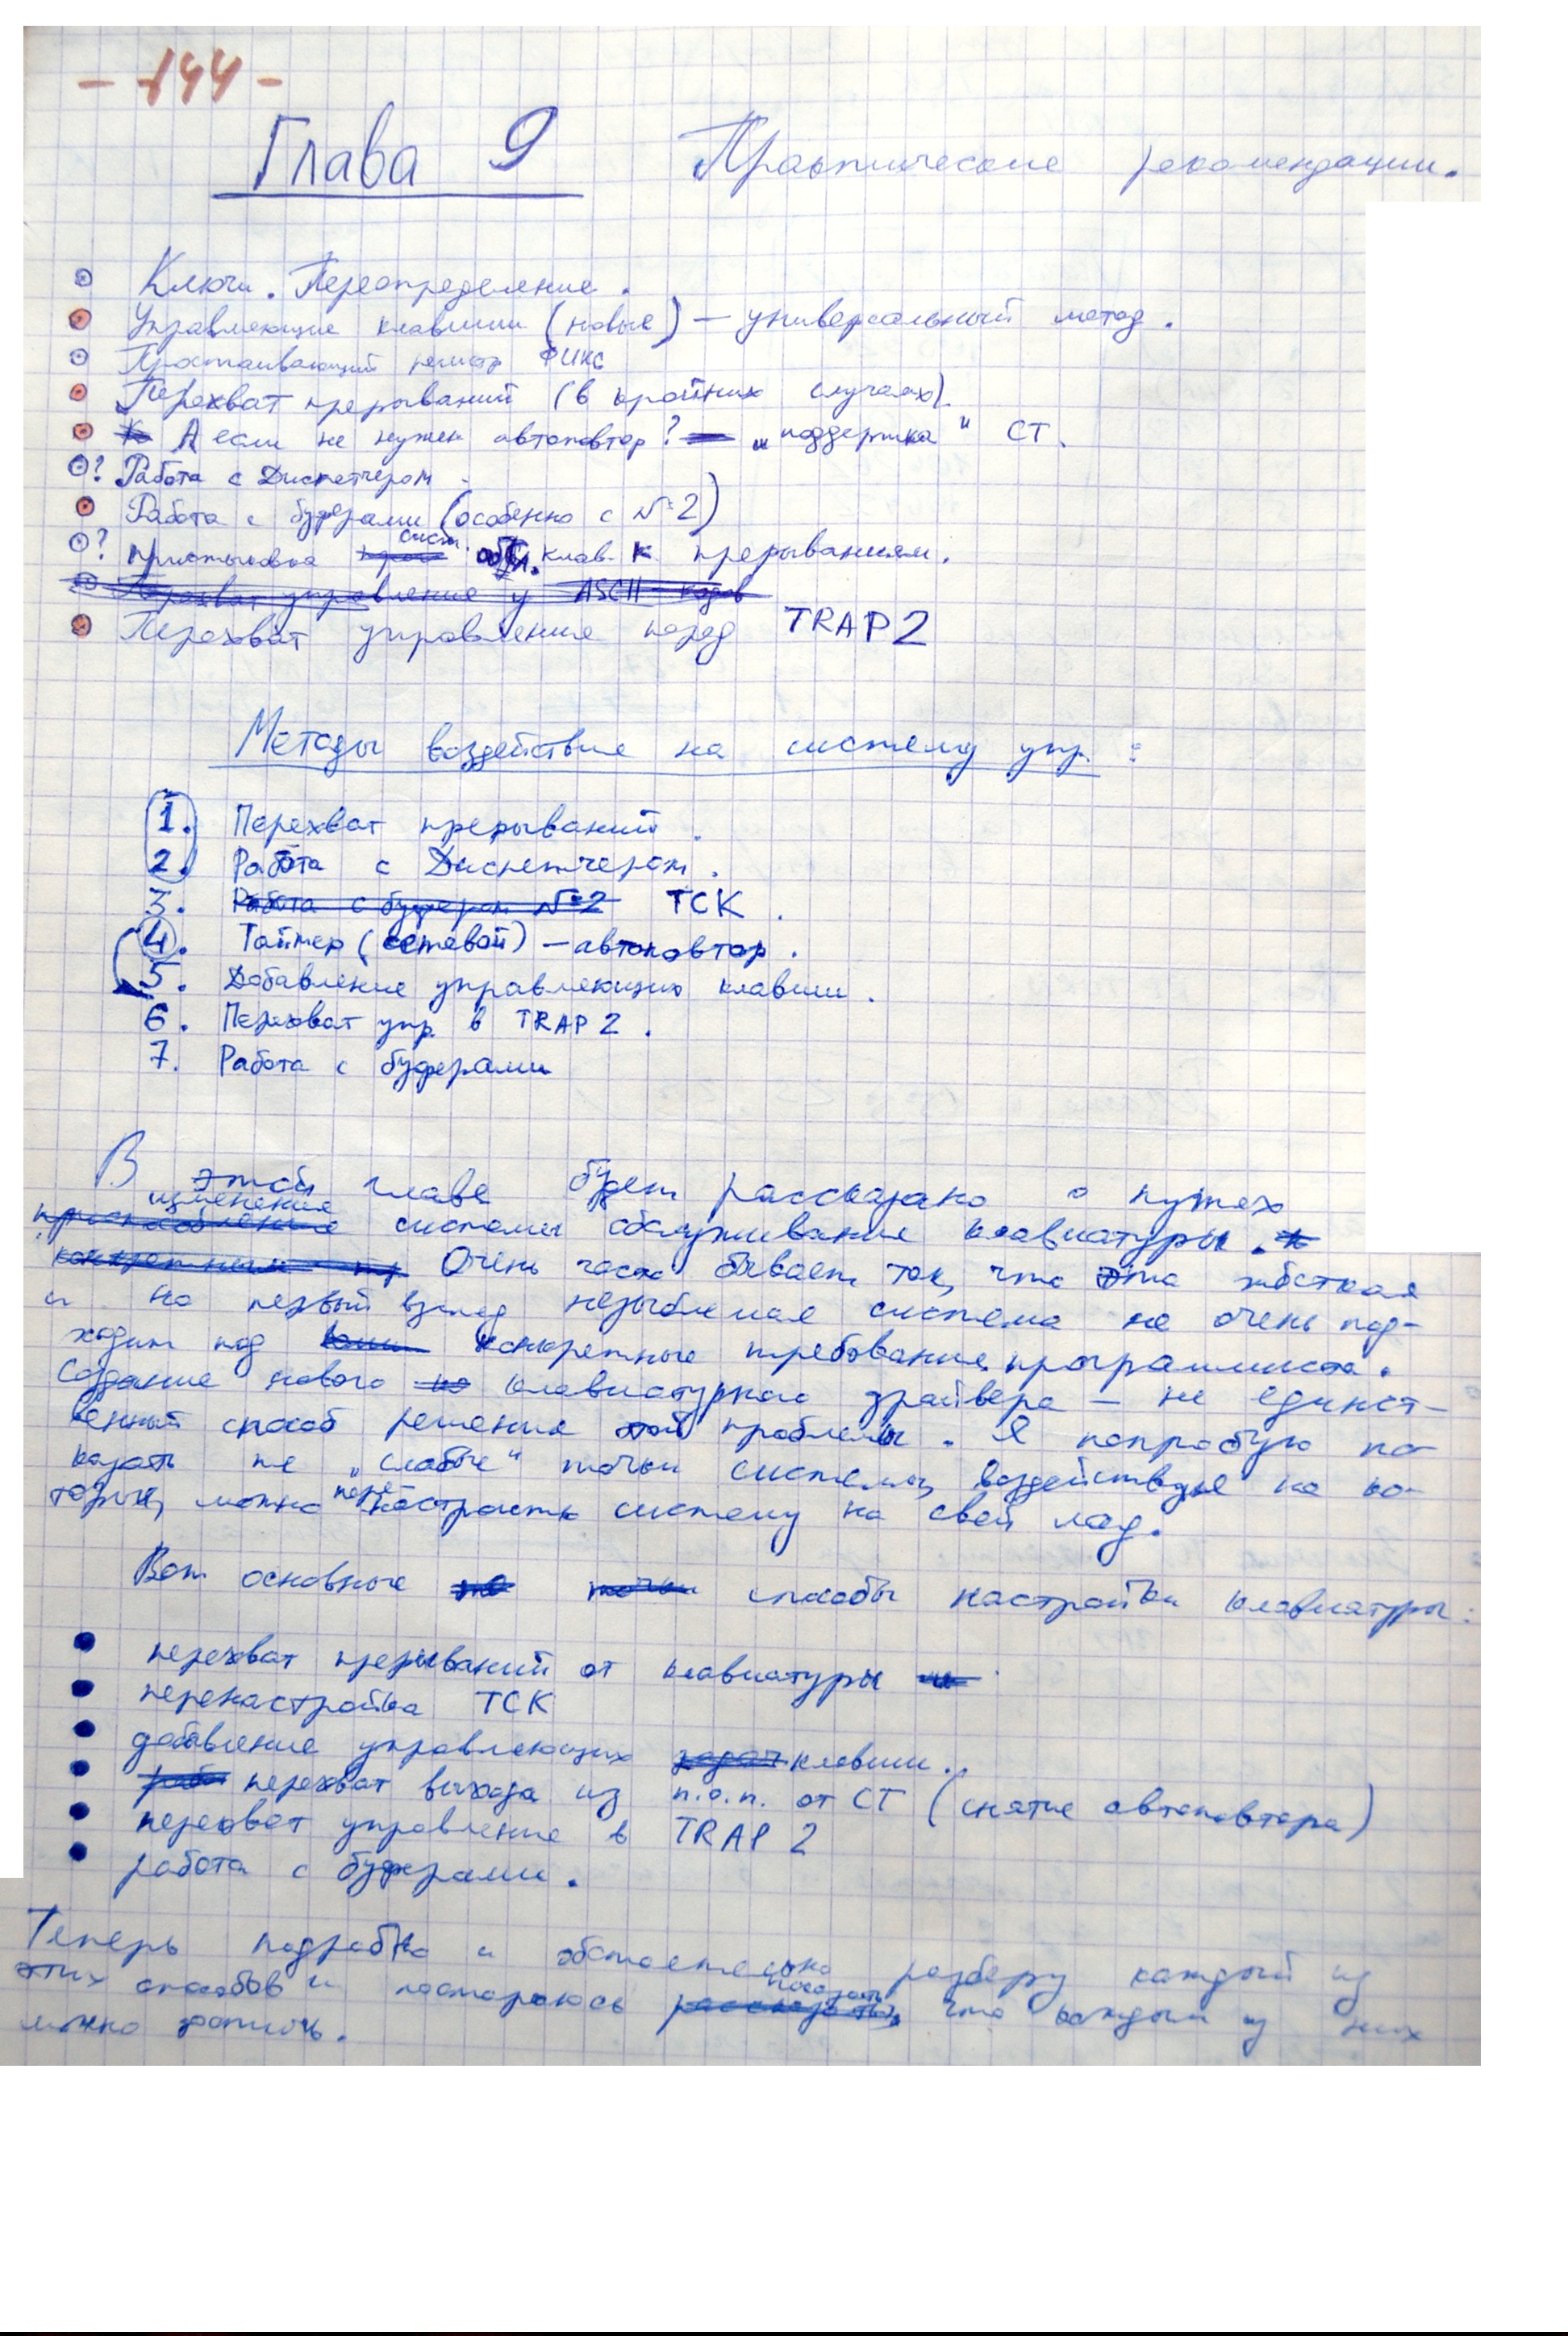 - 144 -
Глава 9 Практические рекомендации.
Ключи. Переопределение.
Управляющие клавиши (новые) — универсальный метод.
Простаивающий регистр ФИКС
Перехват прерываний (в крайних случаях).
А если не нужен автоповтор? — „поддержка" СТ.
? Работа с Диспетчером.
Работа с буферами (особенно с №2)
? пристыковка сист. обл. клав. к прерываниям.
Перехват управления у ASCII-кодов
Перехват управления перед TRAP 2
Методы воздействия на систему упр.:
1. Перехват прерываний.
2. Работа с Диспетчером.
3. Работа с буфером №2 ТСК.
4. Таймер (сетевой) — автоповтор.
5. Добавление управляющих клавиш.
6. Перехват упр. в TRAP 2.
7. Работа с буферами
В этой главе будет рассказано о путях
изменения
приспособления системы обслуживания клавиатуры.
конкретным Очень часто бывает так, что эта жёсткая
и на первый взгляд незыблемая система не очень под-
ходит под конкретные требования программиста.
Создание нового клавиатурного драйвера — не единст-
венный способ решения этой проблемы. Я попробую по-
казать те „слабые" точки системы, воздействуя на ко-
торые, можно перенастроить систему на свой лад.
Вот основные точки способы настройки клавиатуры:
перехват прерываний от клавиатуры
перенастройка ТСК
добавление управляющих задач клавиш.
перехват выхода из п.о.п. от СТ (снятие автоповтора)
перехват управления в TRAP 2
работа с буферами.
Теперь подробно и обстоятельно разберу каждый из
этих способов и постараюсь рассказать показать, что каждым из них
можно достичь.